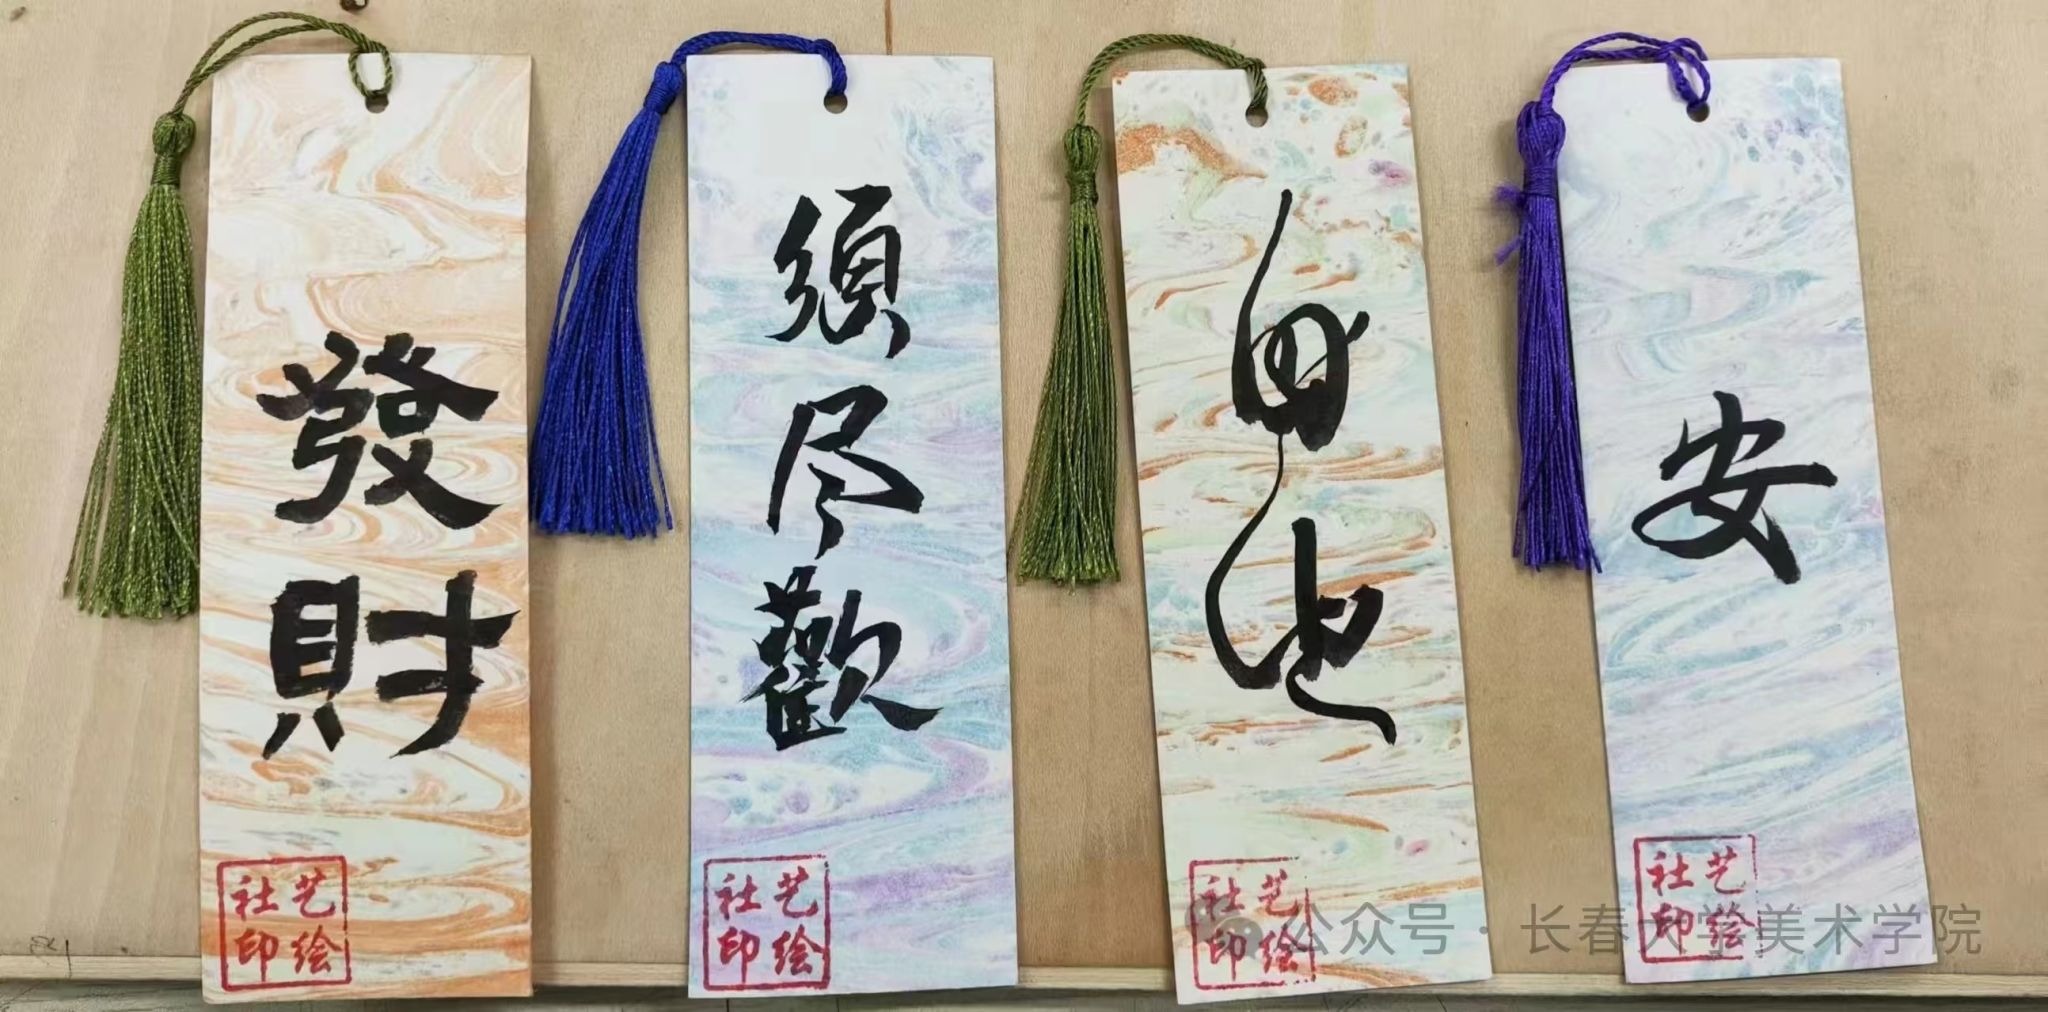 發財
須尽歡
安
艺绘
社印
艺绘
社印
艺绘
社印
艺绘
社印
公众号 · 长春大学美术学院